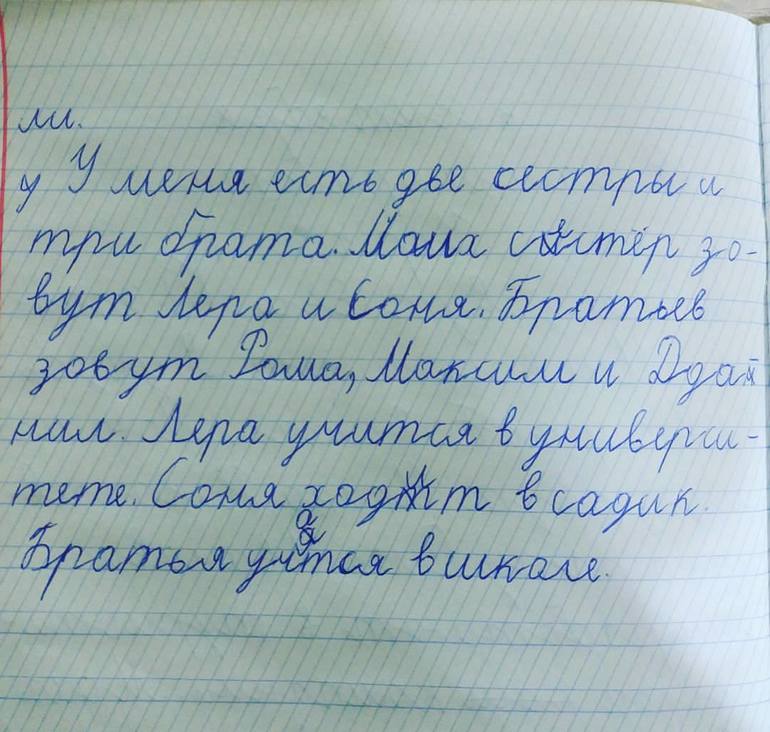 ли.
у У меня есть две сестры и
три брата. Моих сестёр зо-
вут Лера и Соня. Братьев
зовут Рома, Максим и Ддай
нил. Лера учится в универси-
тете. Соня ходит в садик.
Братья учатся в школе.